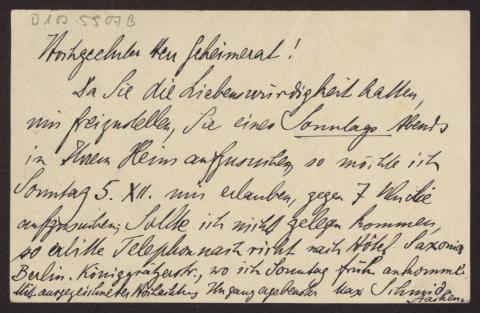 D 102.5507 B
Hochgeehrter Herr Geheimerat!
Da Sie die Liebenswürdigkeit hatten,
mir freizustellen, Sie eines Sonntags Abends
in Ihrem Heim aufzusuchen, so möchte ich
Sonntag 5. XII. mir erlauben, gegen 7 Uhr Sie
aufzusuchen; Sollte ich nicht gelegen kommen,
so erbitte Telephonnachricht nach Hôtel Saxonia
Berlin. Königgrätzerstr., wo ich Sonntag früh ankomme.
Mit ausgezeichneter Hochachtung Ihr ganz ergebenster Max Schmid
Aachen